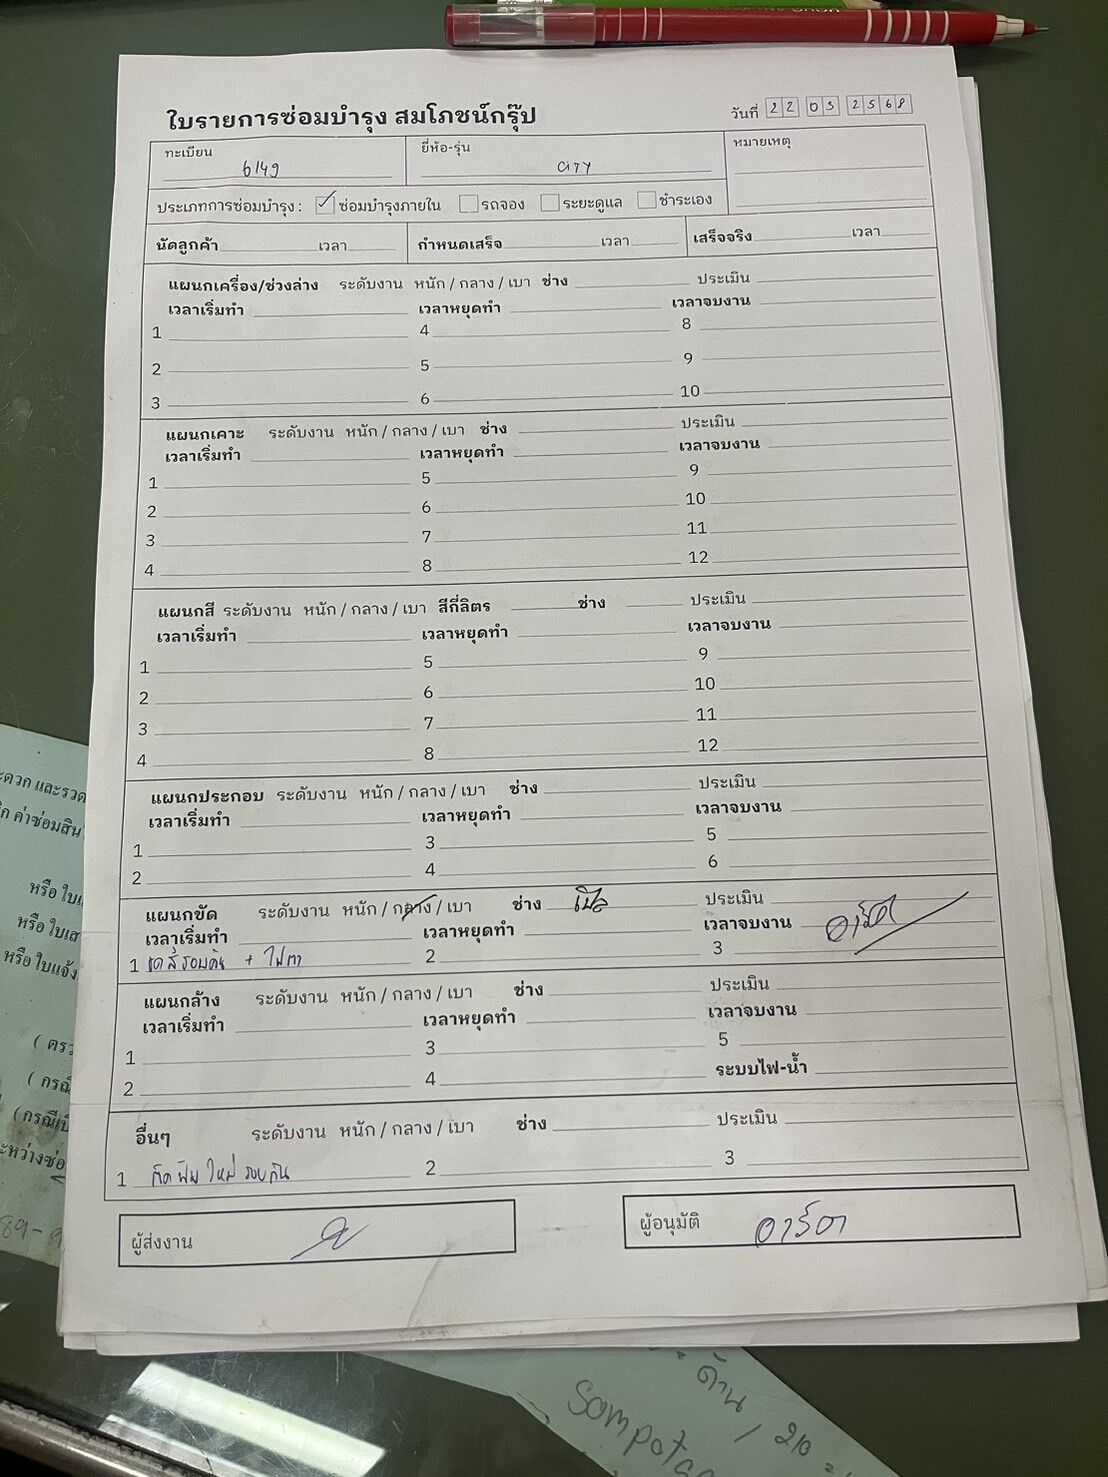 ใบรายการซ่อมบำรุง สมโภชน์กรุ๊ป
วันที่ 22 03 2568
ทะเบียน 6149 ยี่ห้อ-รุ่น CITY หมายเหตุ
ประเภทการซ่อมบำรุง : ซ่อมบำรุงภายใน รถจอง ระยะดูแล ชำระเอง
นัดลูกค้า เวลา กำหนดเสร็จ เวลา เสร็จจริง เวลา
แผนกเครื่อง/ช่วงล่าง ระดับงาน หนัก / กลาง / เบา ช่าง ประเมิน
เวลาเริ่มทำ เวลาหยุดทำ เวลาจบงาน
1 4 8
2 5 9
3 6 10
แผนกเคาะ ระดับงาน หนัก / กลาง / เบา ช่าง ประเมิน
เวลาเริ่มทำ เวลาหยุดทำ เวลาจบงาน
1 5 9
2 6 10
3 7 11
4 8 12
แผนกสี ระดับงาน หนัก / กลาง / เบา สีกี่ลิตร ช่าง ประเมิน
เวลาเริ่มทำ เวลาหยุดทำ เวลาจบงาน
1 5 9
2 6 10
3 7 11
4 8 12
แผนกประกอบ ระดับงาน หนัก / กลาง / เบา ช่าง ประเมิน
เวลาเริ่มทำ เวลาหยุดทำ เวลาจบงาน
1 3 5
2 4 6
แผนกขัด ระดับงาน หนัก / กลาง / เบา ช่าง ประเมิน
เวลาเริ่มทำ เวลาหยุดทำ เวลาจบงาน
1 รอบคัน + ไฟตา 2 3
แผนกล้าง ระดับงาน หนัก / กลาง / เบา ช่าง ประเมิน
เวลาเริ่มทำ เวลาหยุดทำ เวลาจบงาน
1 3 5
2 4 ระบบไฟ-น้ำ
อื่นๆ ระดับงาน หนัก / กลาง / เบา ช่าง ประเมิน
1 ติดฟิม ใหม่ รอบคัน 2 3
ผู้ส่งงาน ผู้อนุมัติ
ะดวก และรวด
ค่าซ่อมสิน
หรือ ใบ
หรือ ใบเส
หรือ ใบแจ้ง
( ตรว
( กรณี
( กรณีเป็
ะหว่างซ่อ
89-
ด้าน / 210
Sompota